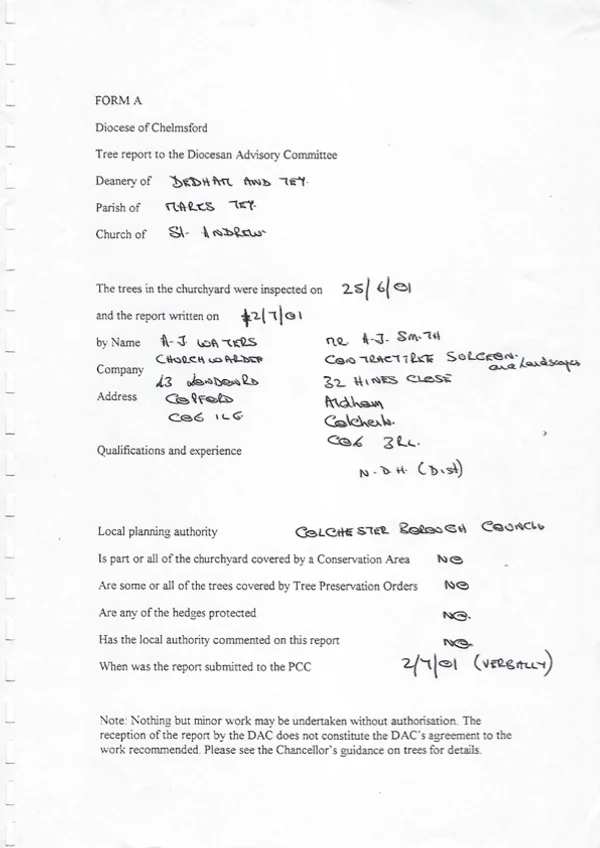 FORM A
Diocese of Chelmsford
Tree report to the Diocesan Advisory Committee
Deanery of DEDHAM AND TEY.
Parish of MARKS TEY.
Church of St. ANDREW
The trees in the churchyard were inspected on 25/6/01
and the report written on 2/7/01
by Name A-J WATERS MR. A-J. SMITH
CHURCH WARDEN CONTRACT TREE SURGEON. and Landscapes
Company 43 LONDON RD 32 HINES CLOSE
Address COPFORD Aldham
CO6 1LG Colchester.
CO6 3RL.
Qualifications and experience
N-D-H. (Dist)
Local planning authority COLCHESTER BOROUGH COUNCIL
Is part or all of the churchyard covered by a Conservation Area NO
Are some or all of the trees covered by Tree Preservation Orders NO
Are any of the hedges protected NO.
Has the local authority commented on this report NO.
When was the report submitted to the PCC 2/7/01 (VERBALLY)
Note: Nothing but minor work may be undertaken without authorisation. The
reception of the report by the DAC does not constitute the DAC's agreement to the
work recommended. Please see the Chancellor's guidance on trees for details.